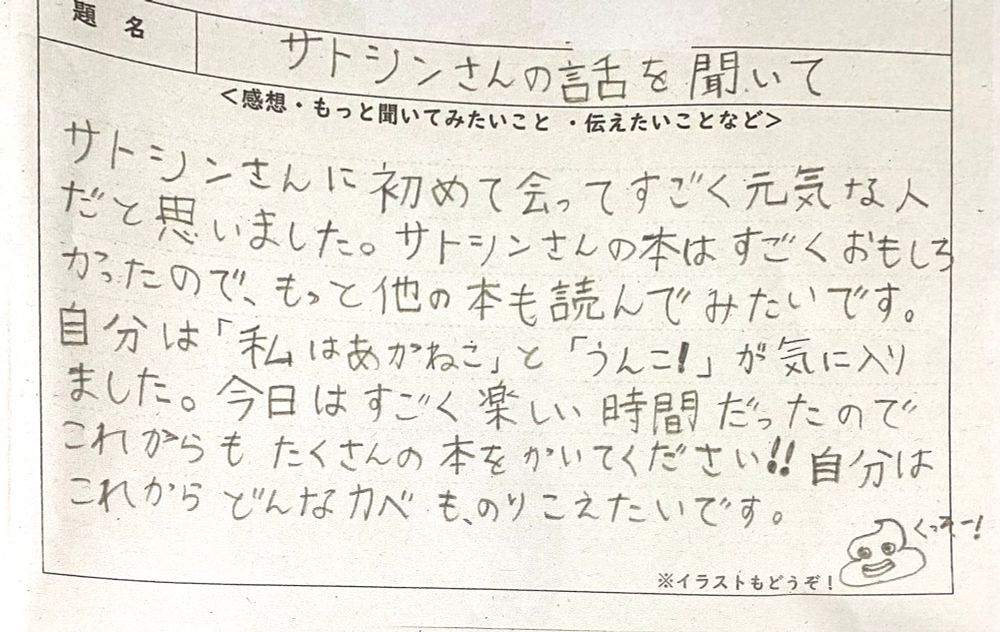 題名
サトシンさんの話を聞いて
<感想・もっと聞いてみたいこと ・伝えたいことなど>
サトシンさんに初めて会ってすごく元気な人
だと思いました。サトシンさんの本はすごくおもしろ
かったので、もっと他の本も読んでみたいです。
自分は「私はあかねこ」と「うんこ!」が気に入り
ました。今日はすごく楽しい時間だったので
これからもたくさんの本をかいてください!!自分は
これからどんなカベも、のりこえたいです。
くっそー!
※イラストもどうぞ!